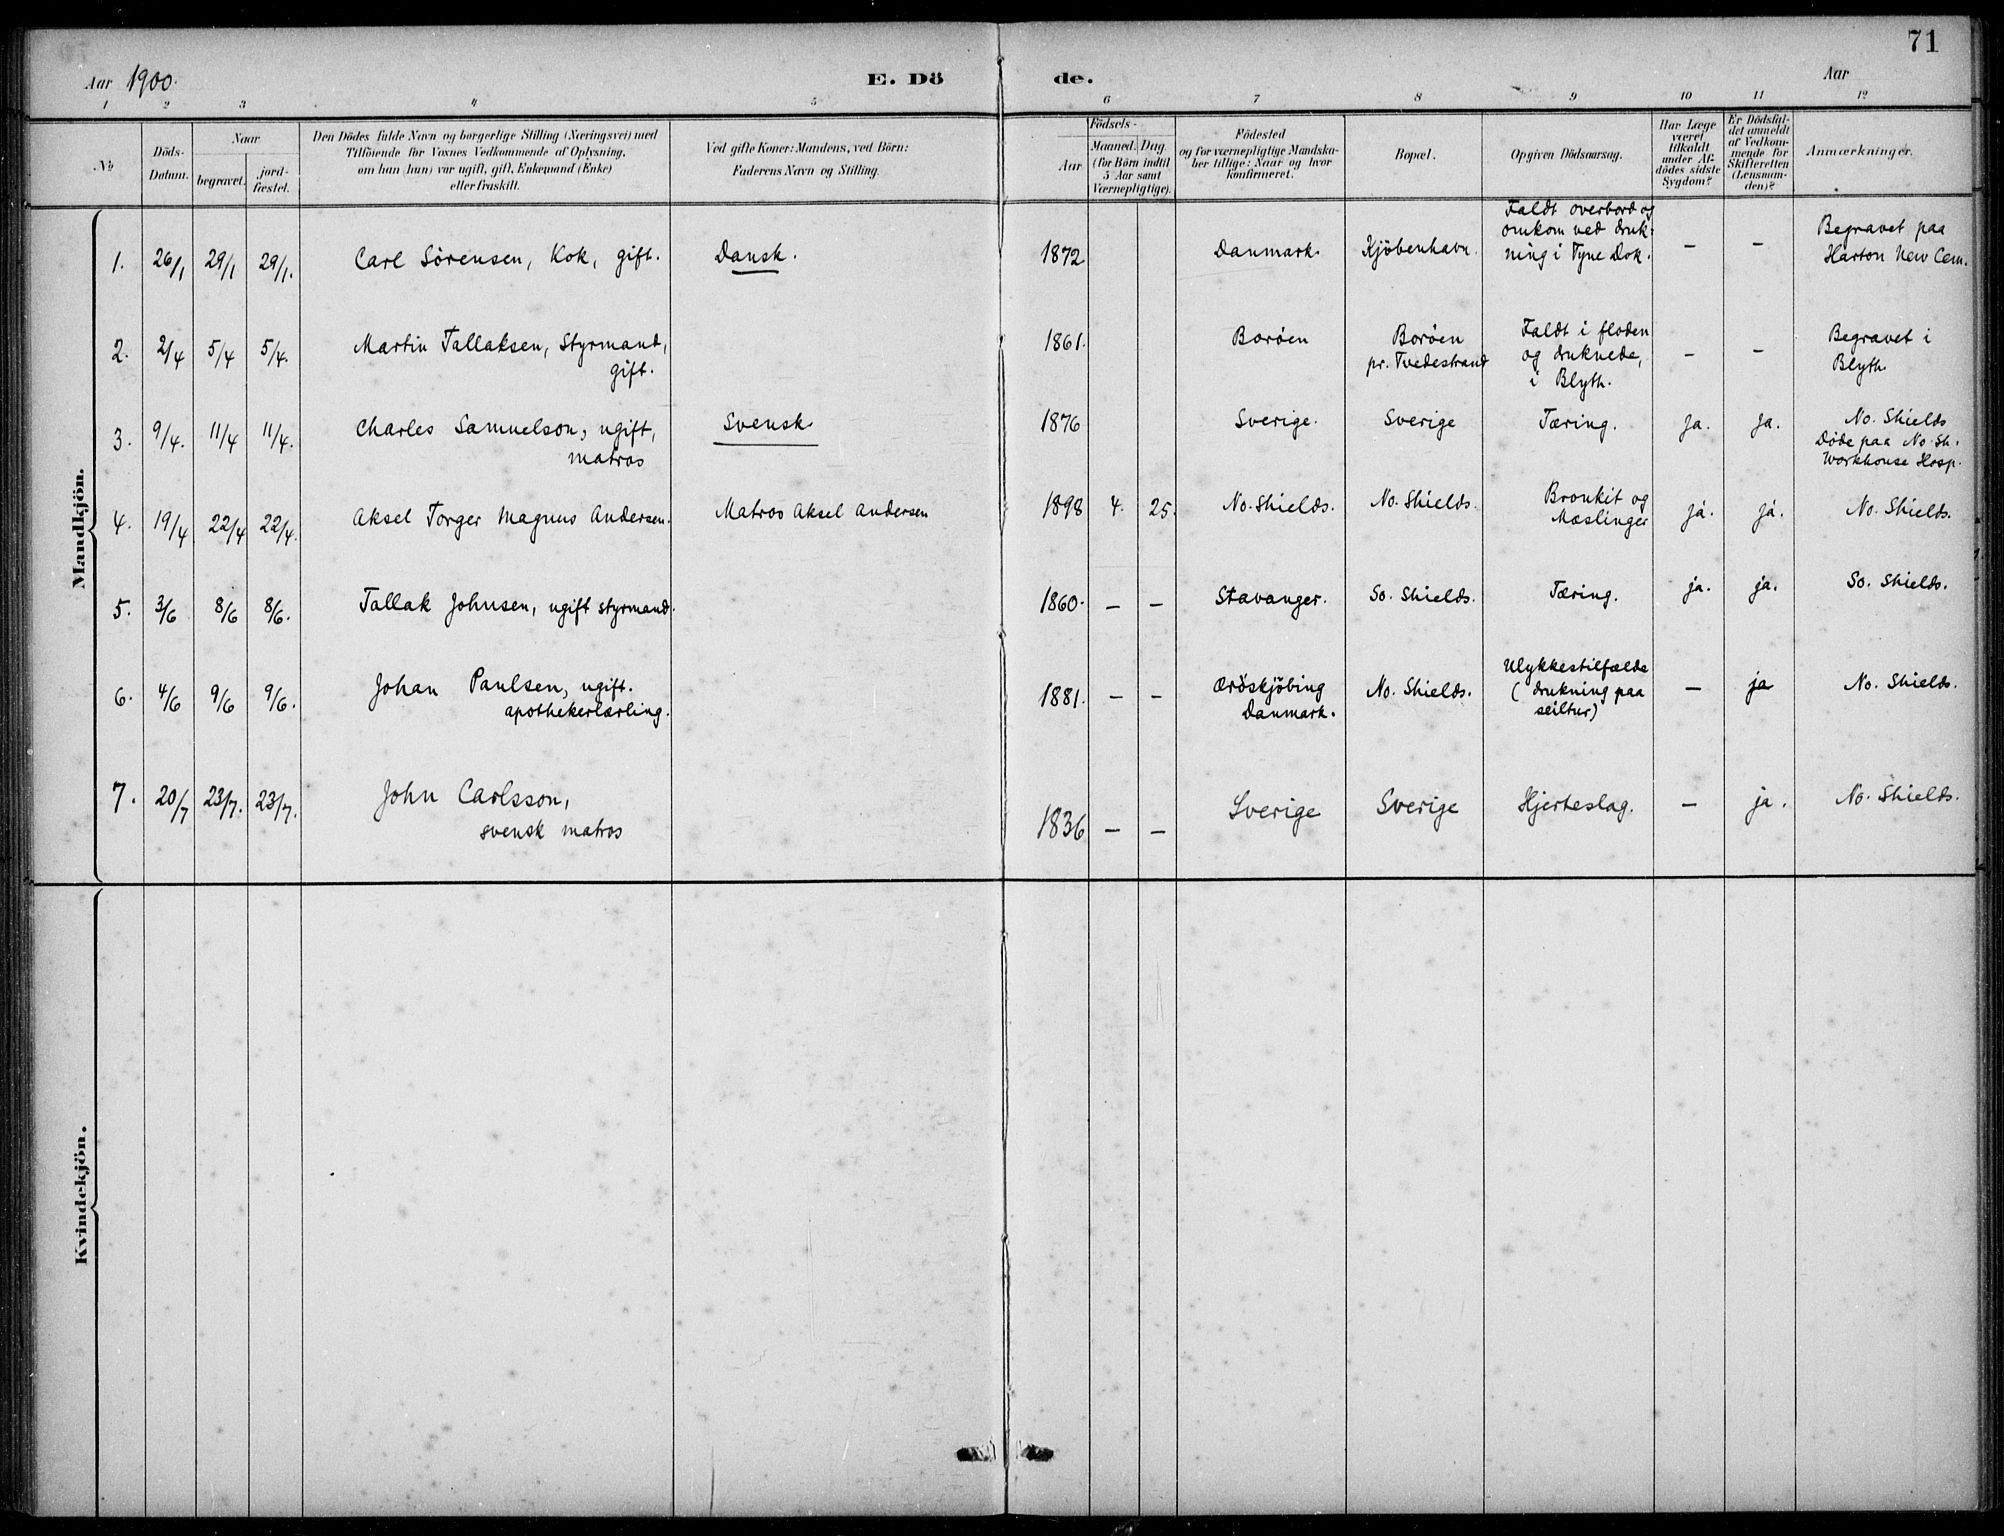 71
Aar 1900.
E. Dö de.
Aar
1 2 3 4 5 6 7 8 9 10 11 12
No
Döds-
Datum.
Naar
begravet.
jord-
fæstet.
Den Dödes fulde Navn og borgerlige Stilling (Næringsvei) med
Tilföiende for Voxnes Vedkommende af Oplysning,
om han (hun) var ugift, gift, Enkemand (Enke)
eller fraskilt.
Ved gifte Koner: Mandens, ved Börn:
Faderens Navn og Stilling.
Födsels-
Aar
Maaned. Dag
(for Börn indtil
5 Aar samt
Værnepligtige).
Födested
og for værnepligtige Mandska-
ber tillige: Naar og hvor
konfirmeret.
Bopæl.
Opgiven Dödsaarsag.
Har Læge
været
tilkaldt
under Af-
dödes sidste
Sygdom?
Er Dödsfal-
det anmeldt
af Vedkom-
mende for
Skifteretten
(Lensman-
den)?
Anmærkninger.
Mandkjön.
1. 26/1 29/1 29/1. Carl Sørensen, Kok, gift. Dansk. 1872 Danmark. Kjöbenhavn.
Faldt overbord og
omkom ved druk-
ning i Tyne Dok.
– –
Begravet paa
Harton New Cem.
2. 2/4 5/4 5/4. Martin Tallaksen, Styrmand,
gift.
1861. Borøen
Borøen
pr. Tvedestrand
Faldt i floden
og druknede,
i Blyth.
– –
Begravet i
Blyth.
3. 9/4. 11/4 11/4. Charles Samuelson, ugift,
matros
Svensk 1876 Sverige. Sverige Tæring. ja. ja.
No. Shields
Døde paa No. Sh.
Workhouse Hosp.
4. 19/4 22/4 22/4. Aksel Torger Magnus Andersen. Matros Aksel Andersen 1898 4. 25. No. Shields. No. Shields.
Bronkit og
Mæslinger
ja. ja. No. Shields.
5. 3/6 8/6 8/6. Tallak Johnsen, ugift styrmand. 1860. – – Stavanger. So. Shields. Tæring. ja. ja. So. Shields.
6. 4/6 9/6 9/6. Johan Paulsen, ugift.
apothekerlærling.
1881. – –
Ærøskjøbing
Danmark.
No. Shields.
Ulykkestilfælde
(drukning paa
seiltur)
– ja No. Shields.
7. 20/7 23/7. 23/7. John Carlsson,
svensk matros
1836 – – Sverige Sverige Hjerteslag. – ja. No. Shields.
Kvindekjön.